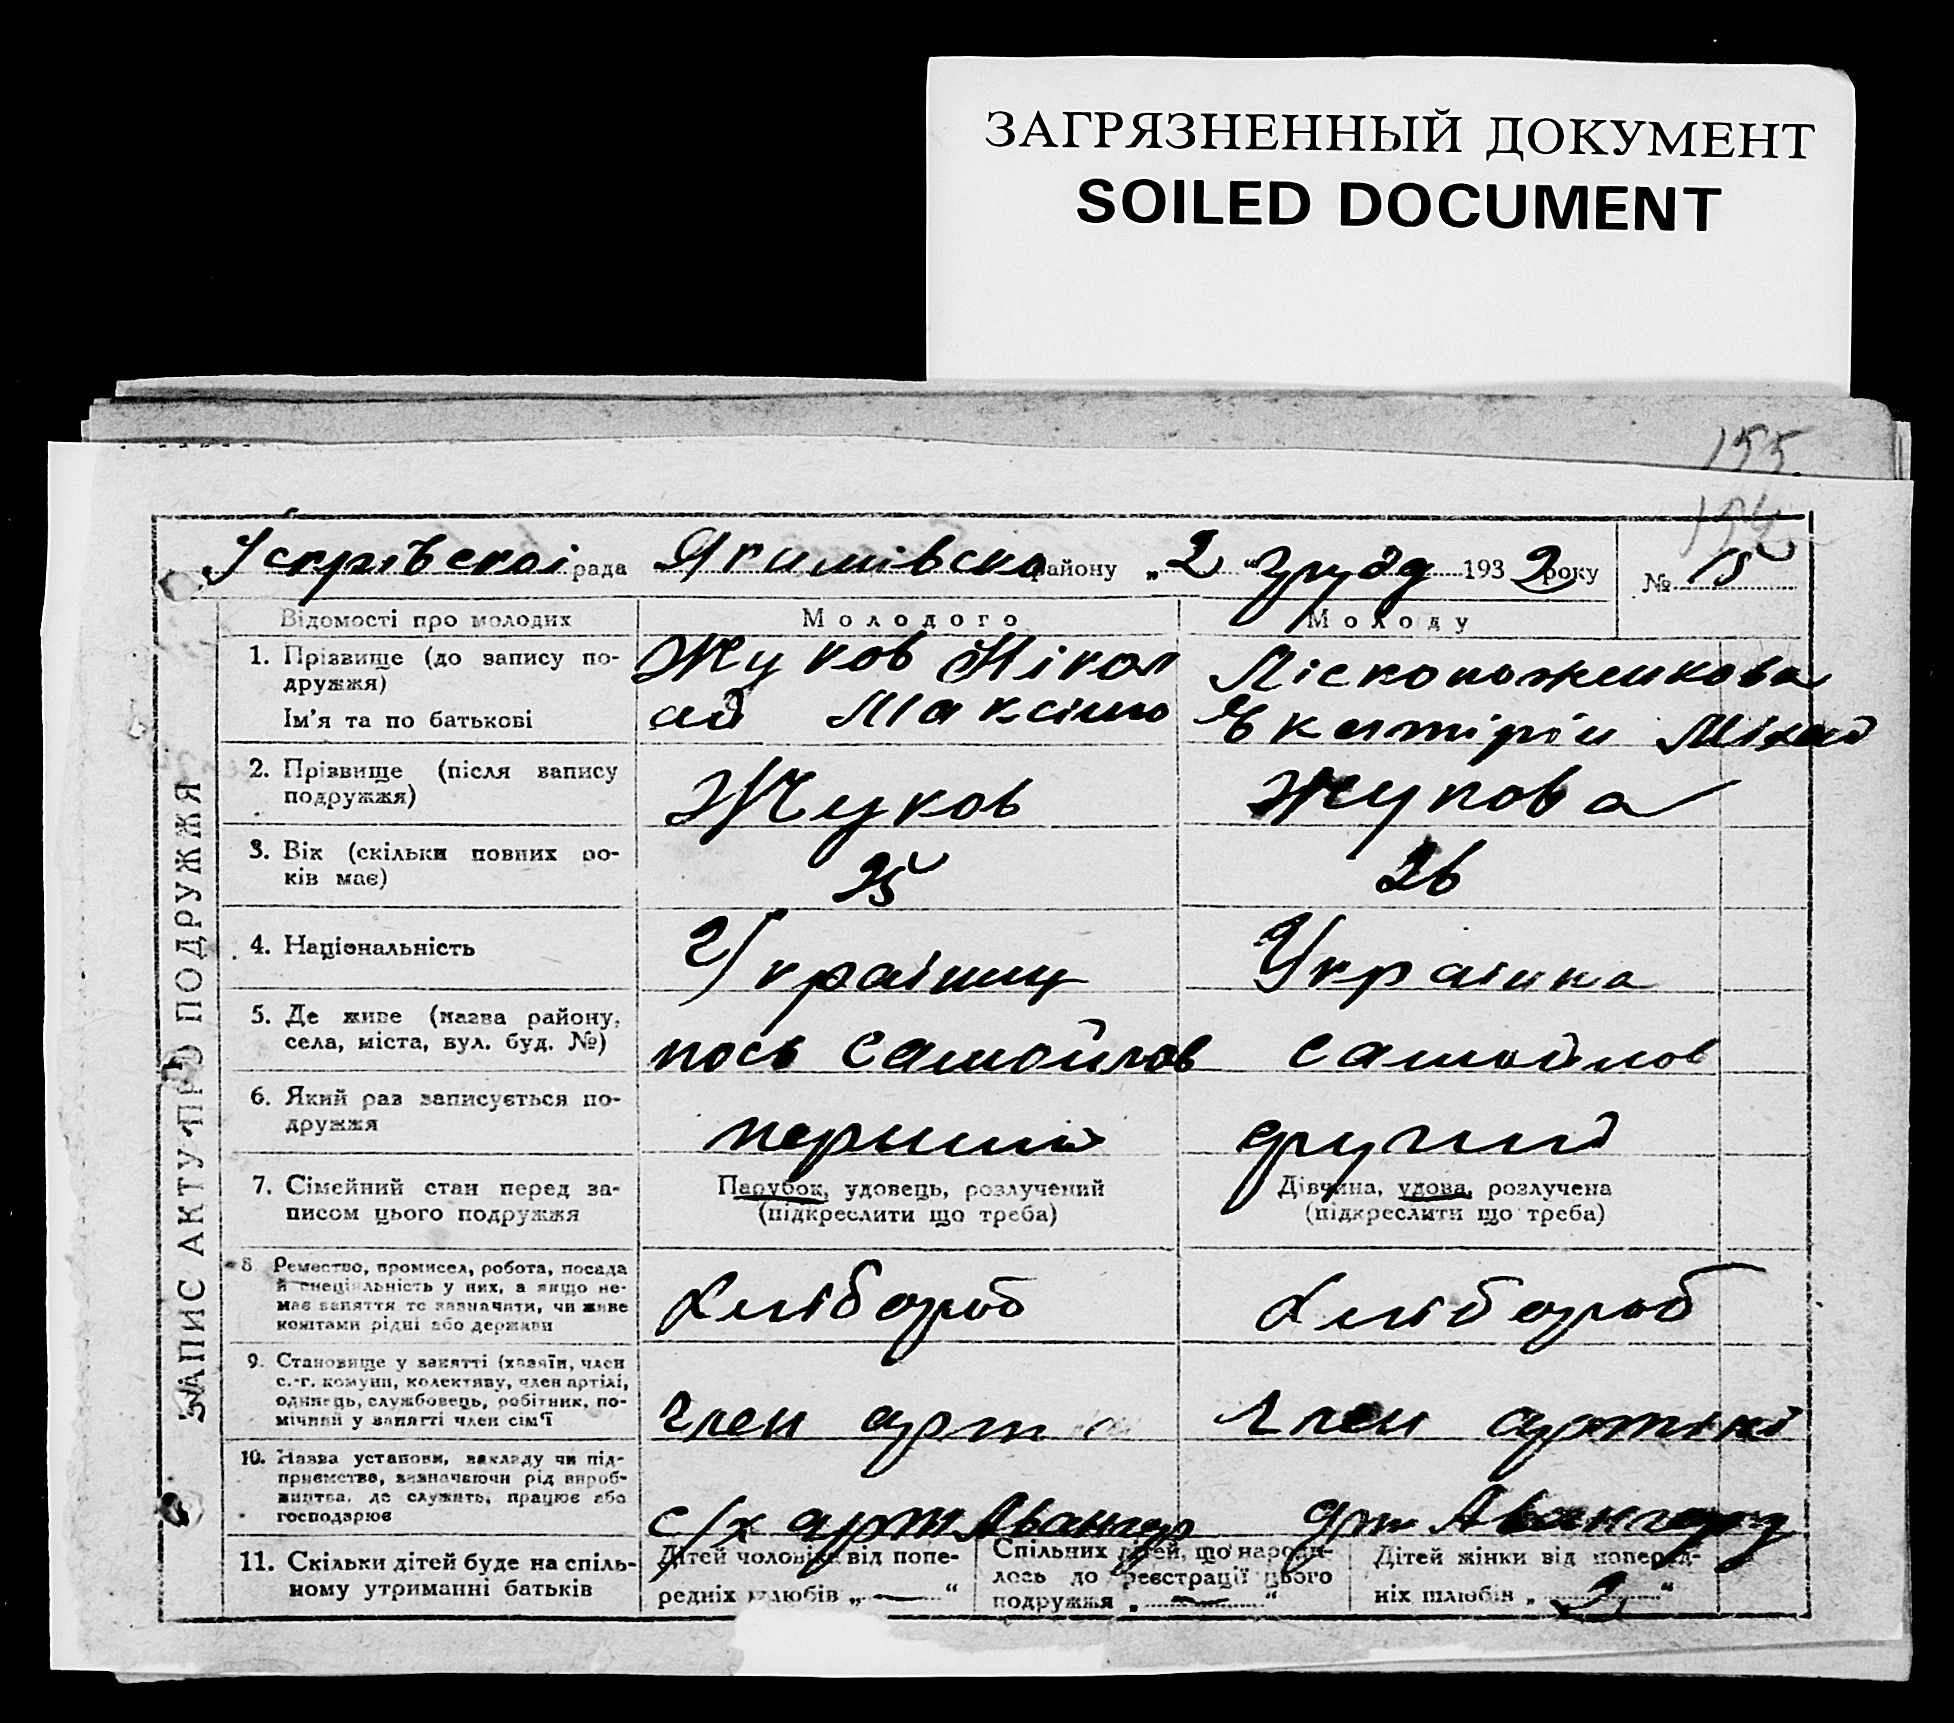 ЗАГРЯЗНЕННЫЙ ДОКУМЕНТ
SOILED DOCUMENT
155
рада Якимівско району „2“ груд 1932 року № 15
ЗАПИС АКТУ ПРО ПОДРУЖЖЯ
Відомості про молодих Молодого Молоду
1. Прізвище (до запису по- Жуков Нікол
дружжя) ай Максімо
Ім'я та по батькові Екатірін Міхай
2. Прізвище (після запису Жуков Жукова
подружжя)
3. Вік (скільки повних ро- 25 26
ків має)
4. Національність Украінец Украінка
5. Де живе (назва району, пось Самойлов Самойлов
села, міста, вул. буд. №)
6. Який раз записується по- первий другий
дружжя
7. Сімейний стан перед за- Парубок, удовець, розлучений Дівчина, удова, розлучена
писом цього подружжя (підкреслити що треба) (підкреслити що треба)
8. Ремество, промисел, робота, посада
й спеціяльність у них, а якщо не- Хлібороб Хлібороб
має заняття то зазначити, чи живе
коштами рідні або держави
9. Становище у занятті (хазяїн, член
с.-г. комуни, колективу, член артілі, член арт член артілі
одинець, службовець, робітник, по-
мічний у занятті член сім'ї
10. Назва установи, закладу чи під-
приємства, зазначаючи рід вироб-
ництва, де служить, працює або с/х арт Авангар арт Авангард
господарює
11. Скільки дітей буде на спіль- Дітей чоловіка від попе- Спільних дітей, що народи- Дітей жінки від поперед-
ному утриманні батьків редніх шлюбів „—“ лось до реєстрації цього ніх шлюбів „2“
подружжя „—“